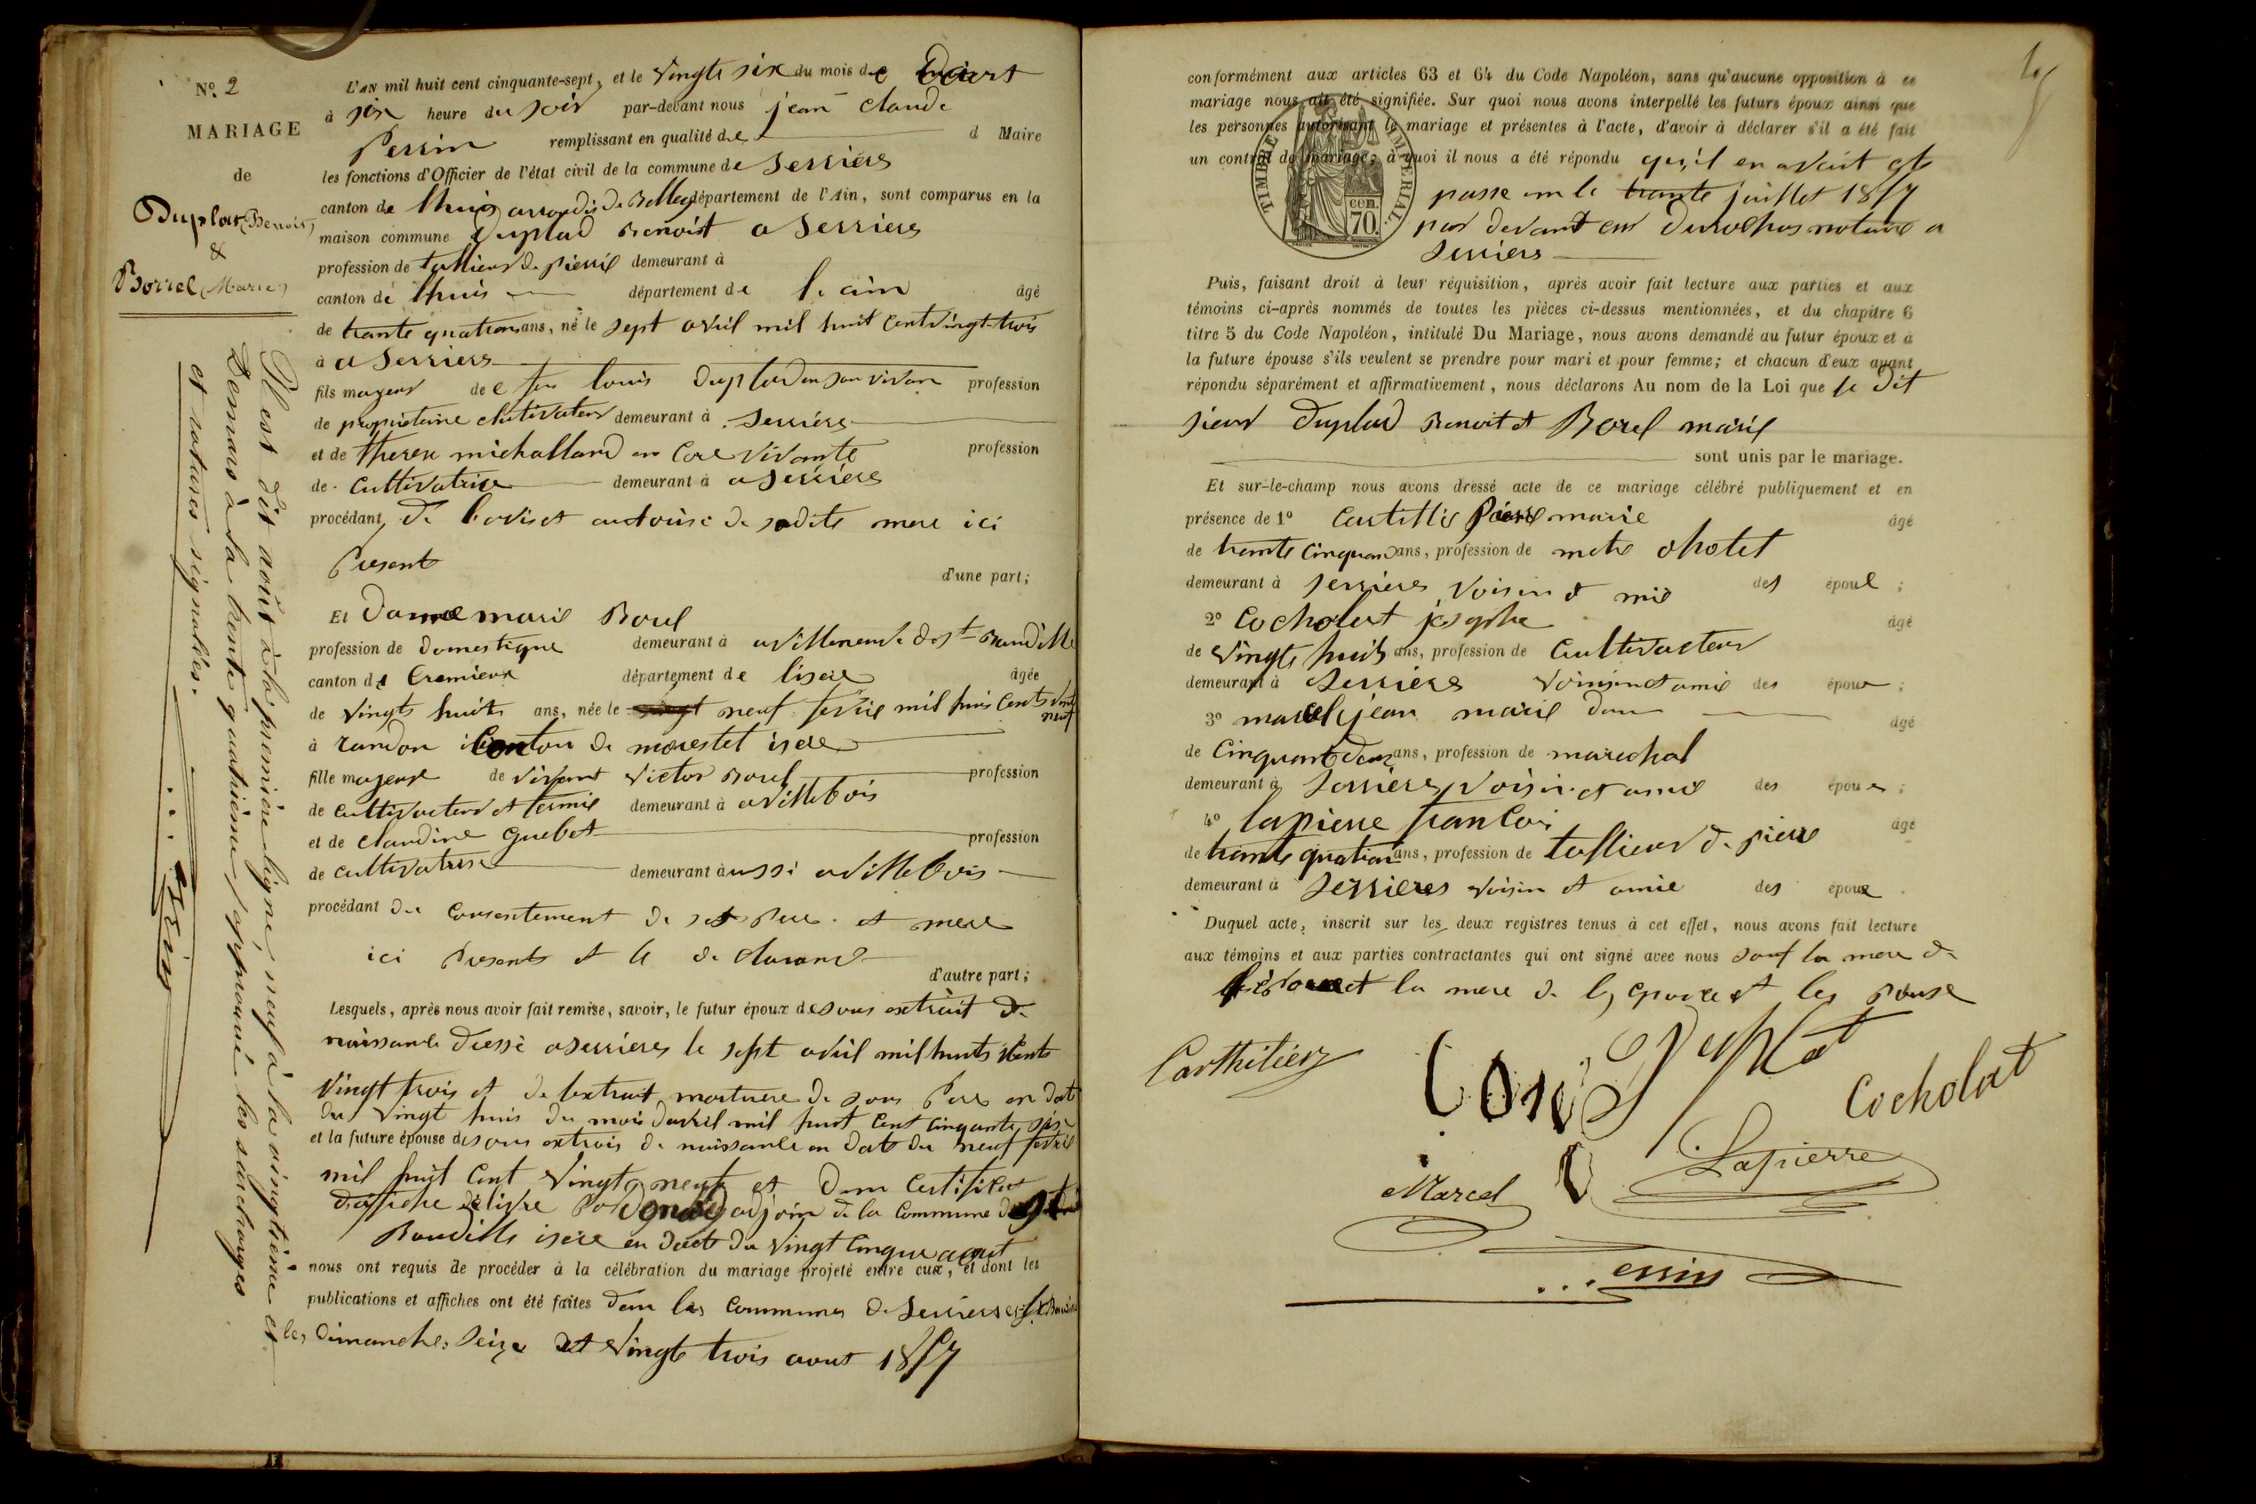 No. 2
MARIAGE
de
Duplat (Benoit)
&
Borrel (Marie)
Il est dit août à la première ligne, neuf à la vingtième et
Demars à la trente quatrième, approuvé les surcharges
et ratures signalées.
L'AN mil huit cent cinquante-sept, et le vingte six du mois de
à six heure du soir par-devant nous jean claude
Perrin remplissant en qualité de d Maire
les fonctions d'Officier de l'état civil de la commune de Serrieres
canton de lhuis arrondis de Belley département de l'Ain, sont comparus en la
maison commune Duplad Benoit a Serrieres
profession de tallieur de pierre demeurant à
canton de lhuis département de l'ain âgé
de trante quatre ans, né le sept avril mil huit cent vingt-trois
à a Serriers
fils majeur de feu louis duplad en son vivan profession
de proprietaire cultivateur demeurant à Serriere
et de therese michallard en core vivante profession
de cultivatrice demeurant à a Serrieres
procédant de l'avis et autorisé de sadite mere ici
Presente
d'une part;
Et Dame marie Borel
profession de domestique demeurant à a villemeude de st Baudille
canton de Cremieux département de lisere âgée
de vingts huit ans, née le neuf fevrie mil huis cents vint neuf
à randon Canton de morestel isere
fille majeure de vivant victor Borel profession
de cultivateur et fermie demeurant à a villebois
et de claudine Guebet profession
de cultivatrise demeurant à aussi a villebois
procédant du consentement de ses Pere et mere
ici Presents et le declarant
d'autre part;
Lesquels, après nous avoir fait remise, savoir, le futur époux de sous extrait de
naissance dressé a Serrieres le sept avril mil huits cents
vingt trois et de lextrait mortuere de sons Pere en date
du vingt huis du mois davril mil huit cent cinquante six
et la future épouse de sous extrais de naissance en date du neuf fevrie
mil huit cent vingts neuf et dun certificat
d'affiche délivre Par adjoin de la commune de
Baudille isere en date du vingt cinque aout
nous ont requis de procéder à la célébration du mariage projeté entre eux, et dont les
publications et affiches ont été faites dans les communes de Serrieres et st Baudille
les Dimanches seize et vingte trois aout 1857
conformément aux articles 63 et 64 du Code Napoléon, sans qu'aucune opposition à ce
mariage nous ait été signifiée. Sur quoi nous avons interpellé les futurs époux ainsi que
les personnes autorisant le mariage et présentes à l'acte, d'avoir à déclarer s'il a été fait
un contrat de mariage; à quoi il nous a été répondu qu'il en avait ete
TIMBRE IMPERIAL.
cen.
70.
passe un le trante juillet 1857
par devant notaire a
Serriers
Puis, faisant droit à leur réquisition, après avoir fait lecture aux parties et aux
témoins ci-après nommés de toutes les pièces ci-dessus mentionnées, et du chapitre 6
titre 5 du Code Napoléon, intitulé Du Mariage, nous avons demandé au futur époux et à
la future épouse s'ils veulent se prendre pour mari et pour femme; et chacun d'eux ayant
répondu séparément et affirmativement, nous déclarons Au nom de la Loi que le dit
sieur Duplad Benoit et Borel marie
sont unis par le mariage.
Et sur-le-champ nous avons dressé acte de ce mariage célébré publiquement et en
présence de 1o Pierre marie âgé
de trante cinque ans, profession de metre d'hotel
demeurant à Serrieres voisin et mis des époux ;
2o Cocholat josephe âgé
de vingts huit ans, profession de cultivateur
demeurant à Serrieres voinsin et amie des époux ;
3o marcel jean marie âgé
de cinquante deux ans, profession de marechal
demeurant à Serrieres voisin et amie des époux ;
4o lapierre francois âgé
de trante quatre ans, profession de tallieur de pierre
demeurant à Serrieres voisin et amie des époux .
Duquel acte, inscrit sur les deux registres tenus à cet effet, nous avons fait lecture
aux témoins et aux parties contractantes qui ont signé avec nous sauf la mere de
et la mere de lepouse et lepouse
Carthilier Duplat
Cocholat
Marcel Lapierre
Perrin